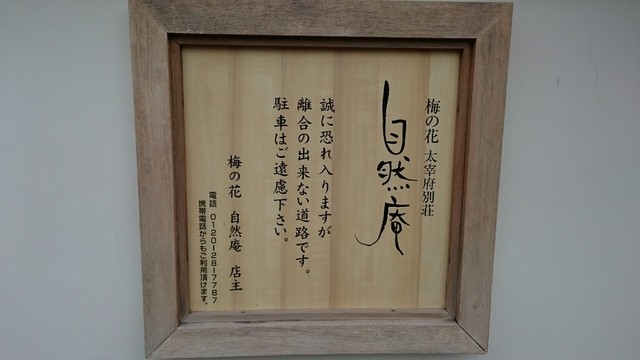 梅の花 太宰府別荘
自然庵
誠に恐れ入りますが
離合の出来ない道路です。
駐車はご遠慮下さい。
梅の花 自然庵 店主
電話 0120-28-7787
携帯電話からもご利用頂けます。